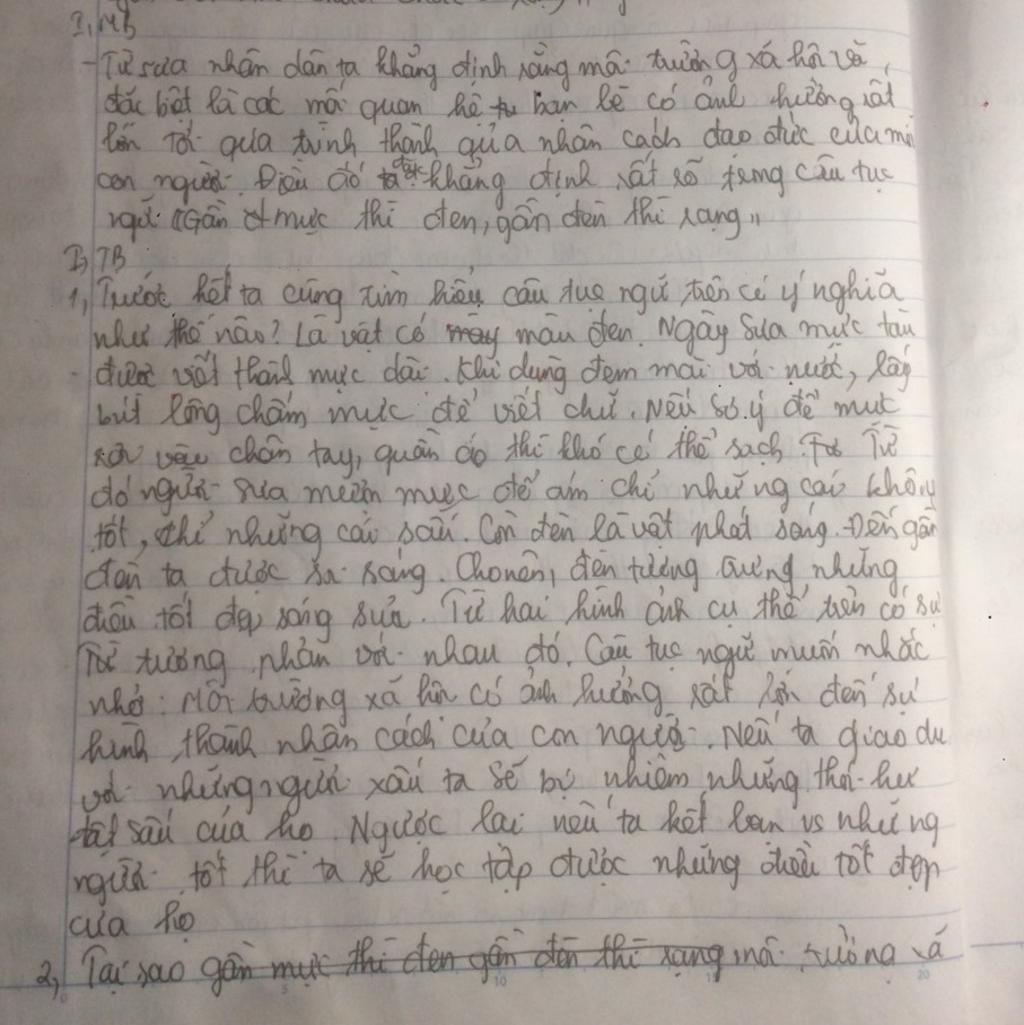 I, MB
- Từ sưa nhân dân ta khẳng định rằng môi trường xã hội và,
đặc biệt là các mối quan hệ bạn bè có ảnh hưởng rất
lớn tới quá trình thành của nhân cách đạo đức của mỗi
con người. Điều đó được khẳng định rất rõ trong câu tục
ngữ "Gần mực thì đen, gần đèn thì rạng"
II, TB
1, Trước hết ta cùng tìm hiểu câu tục ngữ trên có ý nghĩa
như thế nào? Là vật có màu đen. Ngày sưa mực tàu
được viết thành mực dài. Khi dùng đem mài với nước, lấy
bút lông chấm mực để viết chữ. Nếu sơ ý để mực
rơi vào chân tay, quần áo thì khó có thể sạch. Từ
đó người sưa mượn mực để ám chỉ những cái không
tốt, chỉ những cái sấu. Còn đèn là vật phát sáng. Đến gần
đèn ta được sáng. Cho nên, đèn tượng trưng những
điều tốt đẹp sáng sủa. Từ hai hình ảnh cụ thể trên có sự
tư tương phản với nhau đó. Câu tục ngữ muốn nhắc
nhở: Môi trường xã hội có ảnh hưởng rất lớn đến sự
hình thành nhân cách của con người. Nếu ta giao du
với những người xấu ta sẽ bị nhiễm những thói hư
tật sấu của họ. Ngược lại nếu ta kết bạn vs những
người tốt thì ta sẽ học tập được những điều tốt đẹp
của họ
2, Tại sao gần mực thì đen gần đèn thì rạng môi trường xã